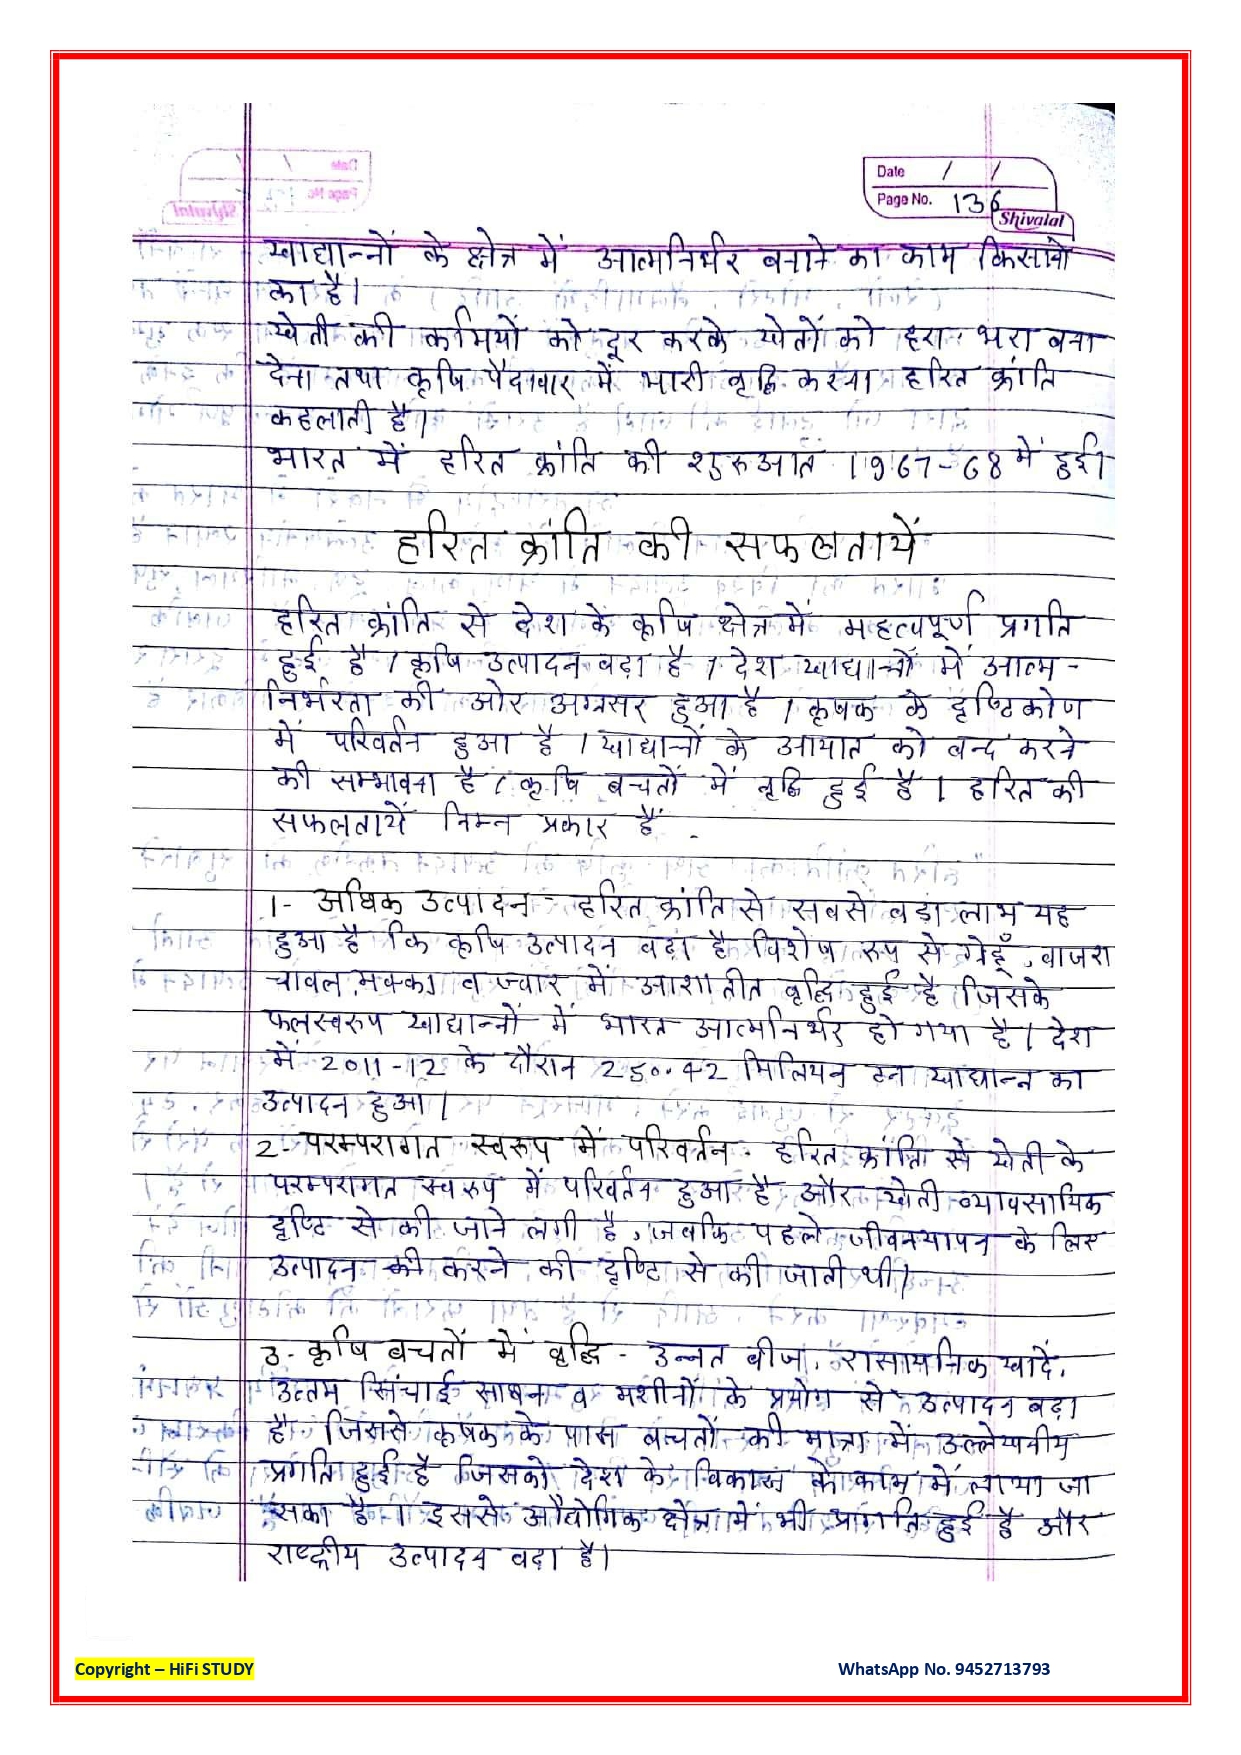 Date / /
Page No. 136
Shivalal
खाद्यान्नों के क्षेत्र में आत्मनिर्भर बनाने का काम किसानो
का है।
खेती की कमियों को दूर करके खेतों को हरा भरा बना
देना तथा कृषि पैदावार में भारी वृद्धि करना हरित क्रांति
कहलाती है।
भारत में हरित क्रांति की शुरुआत 1967-68 में हुई।
हरित क्रांति की सफलतायें
हरित क्रांति से देश के कृषि क्षेत्र में महत्वपूर्ण प्रगति
हुई है। कृषि उत्पादन बढ़ा है। देश खाद्यान्नों में आत्म-
निर्भरता की ओर अग्रसर हुआ है। कृषक के दृष्टिकोण
में परिवर्तन हुआ है। खाद्यान्नों के आयात को बन्द करने
की सम्भावना है। कृषि बचतों में वृद्धि हुई है। हरित की
सफलतायें निम्न प्रकार हैं -
1- अधिक उत्पादन - हरित क्रांति से सबसे बड़ा लाभ यह
हुआ है कि कृषि उत्पादन बढ़ा है विशेष रूप से गेहूँ, बाजरा
चावल, मक्का व ज्वार में आशातीत वृद्धि हुई है जिसके
फलस्वरूप खाद्यान्नों में भारत आत्मनिर्भर हो गया है। देश
में 2011-12 के दौरान 250.42 मिलियन टन खाद्यान्न का
उत्पादन हुआ।
2- परम्परागत स्वरूप में परिवर्तन - हरित क्रांति से खेती के
परम्परागत स्वरूप में परिवर्तन हुआ है और खेती व्यावसायिक
दृष्टि से की जाने लगी है, जबकि पहले जीवनयापन के लिए
उत्पादन की करने की दृष्टि से की जाती थी।
3- कृषि बचतों में वृद्धि - उन्नत बीज, रासायनिक खादें,
उत्तम सिंचाई साधन व मशीनों के प्रयोग से उत्पादन बढ़ा
है। जिससे कृषक के पास बचतों की मात्रा में उल्लेखनीय
प्रगति हुई है जिसको देश के विकास के काम में लाया जा
सका है। इससे औद्योगिक क्षेत्र में भी प्रगति हुई है और
राष्ट्रीय उत्पादन बढ़ा है।
Copyright – HiFi STUDY
WhatsApp No. 9452713793